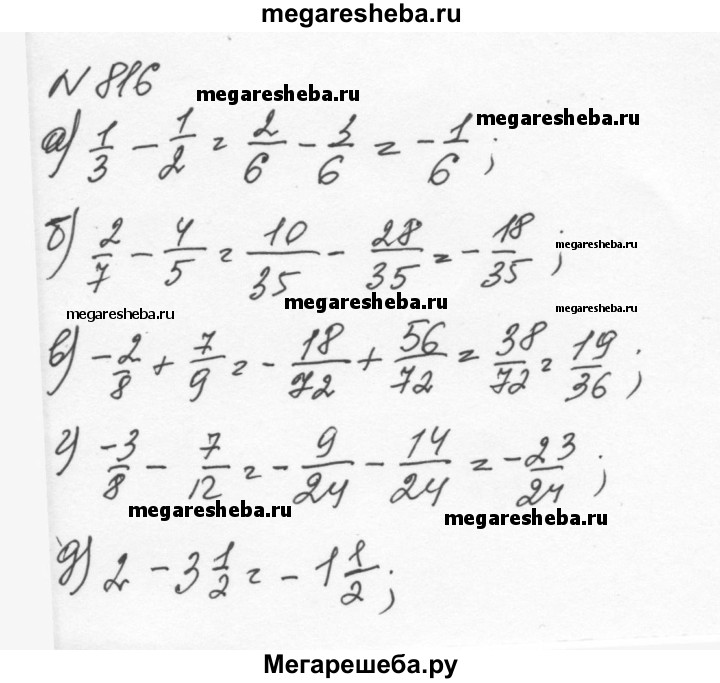 megaresheba.ru
N 816
megaresheba.ru
megaresheba.ru
а) 1/3 - 1/2 = 2/6 - 3/6 = - 1/6 ;
б) 2/7 - 4/5 = 10/35 - 28/35 = - 18/35 ;
megaresheba.ru
megaresheba.ru
megaresheba.ru
megaresheba.ru
в) -2/8 + 7/9 = - 18/72 + 56/72 = 38/72 = 19/36 ;
г) -3/8 - 7/12 = - 9/24 - 14/24 = - 23/24 ;
megaresheba.ru
megaresheba.ru
д) 2 - 3 1/2 = - 1 1/2 ;
Мегарешеба.ру